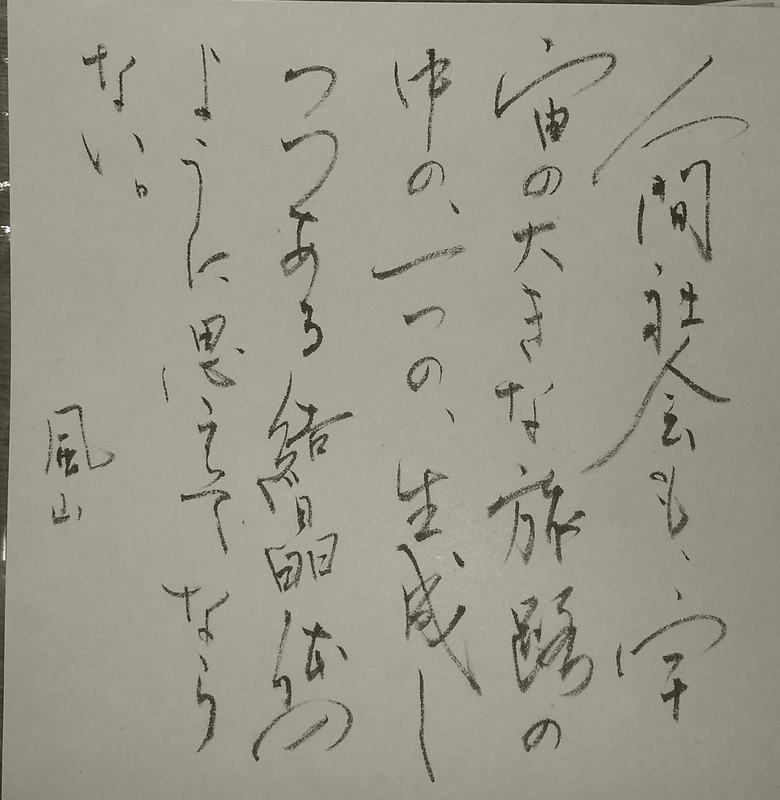 人間社会も、宇
宙の大きな旅路の
中の、一つの、生成し
つつある結晶体の
ように思えてなら
ない。
風山